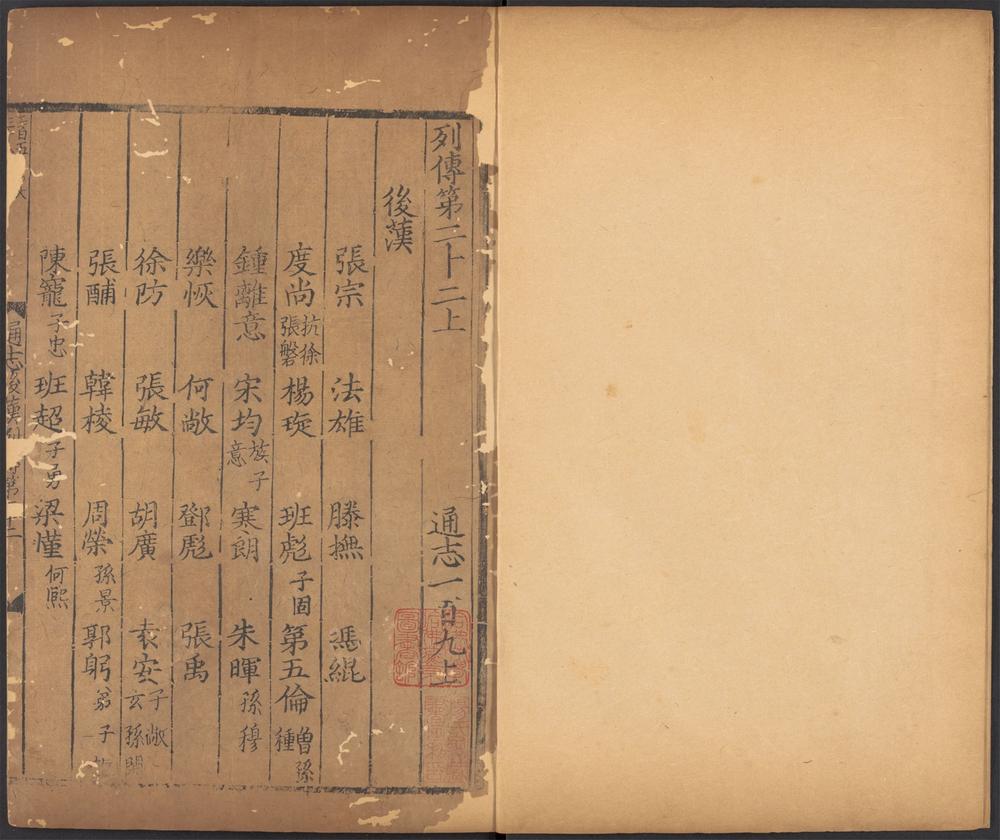 列傳第二十二上 通志一百九上
後漢
張宗 法雄 滕撫 馮緄
度尚 抗徐 張磐 楊琁 班彪 子固 第五倫 曾孫種
鍾離意 宋均 族子意 寒朗 朱暉 孫穆
樂恢 何敞 鄧彪 張禹
徐防 張敏 胡廣 袁安 子敞 玄孫閎
張酺 韓棱 周榮 孫景 郭躬 弟子
陳寵 子忠 班超 子勇 梁慬 何熙
通志後漢列